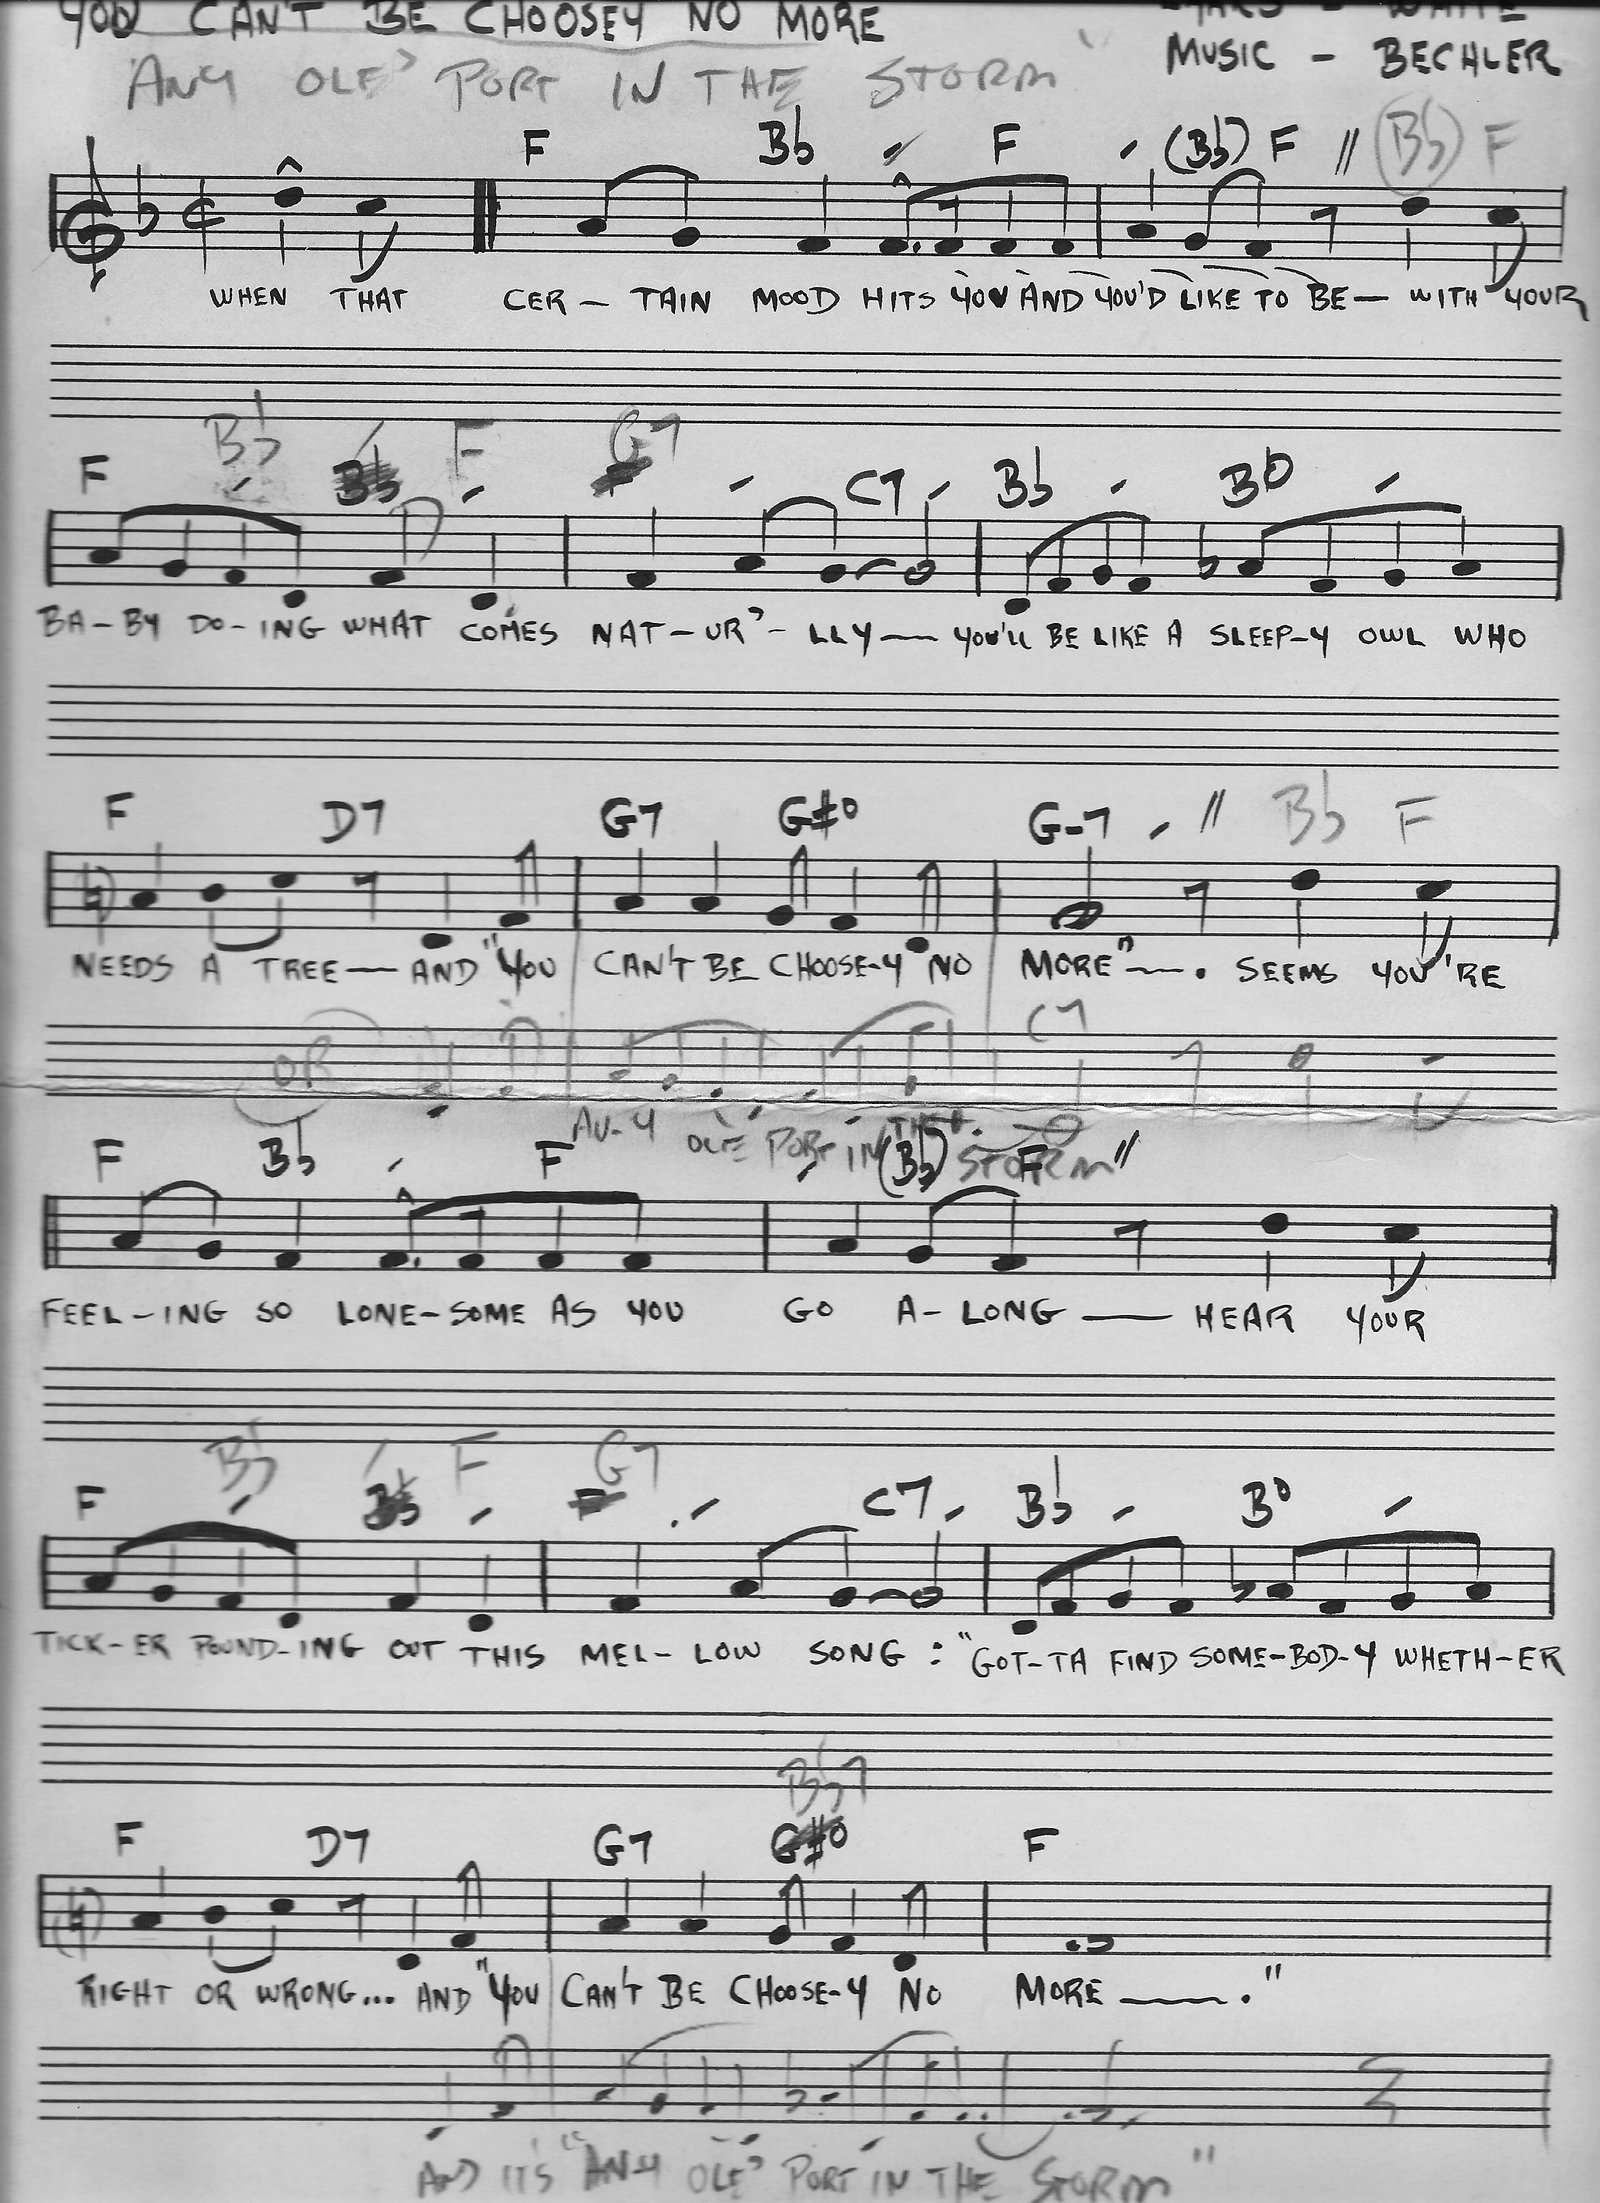 YOU CAN'T BE CHOOSEY NO MORE
- WHITE
"ANY OLE' PORT IN THE STORM"
MUSIC - BECHLER
F Bb F (Bb) F // (Bb) F
WHEN THAT CER-TAIN MOOD HITS YOU AND YOU'D LIKE TO BE— WITH YOUR
Bb F G7
F Bb F C7 Bb B°
BA-BY DO-ING WHAT COMES NAT-UR'-LLY— YOU'LL BE LIKE A SLEEP-Y OWL WHO
F D7 G7 G#° G-7 // Bb F
NEEDS A TREE— AND "YOU CAN'T BE CHOOSE-Y NO MORE"—. SEEMS YOU'RE
OR C7
AN-Y OLE PORT IN THE STORM
F Bb F (Bb) F //
FEEL-ING SO LONE-SOME AS YOU GO A-LONG— HEAR YOUR
Bb F G7
F Bb F C7 Bb B°
TICK-ER POUND-ING OUT THIS MEL-LOW SONG: "GOT-TA FIND SOME-BOD-Y WHETH-ER
Bb7
F D7 G7 G#° F
RIGHT OR WRONG... AND "YOU CAN'T BE CHOOSE-Y NO MORE—."
AND IT'S "AN-Y OLE' PORT IN THE STORM"